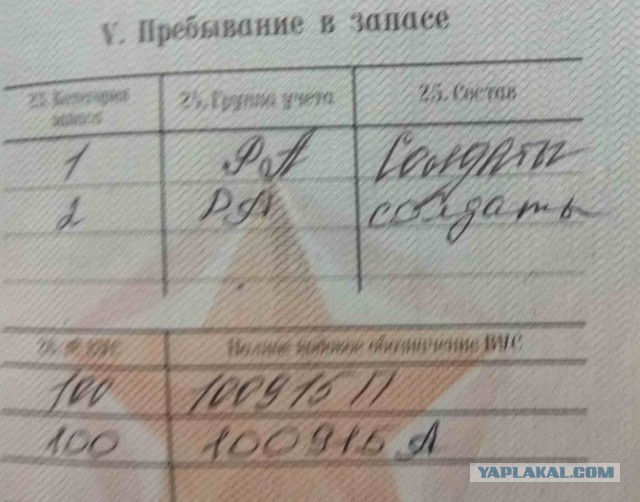 V. Пребывание в запасе
23. Категория запаса 24. Группа учета 25. Состав
1 РА Солдаты
2 РА солдаты
26. № ВУС Полное кодовое обозначение ВУС
100 100915 П
100 100915 А
YAPLAKAL.COM